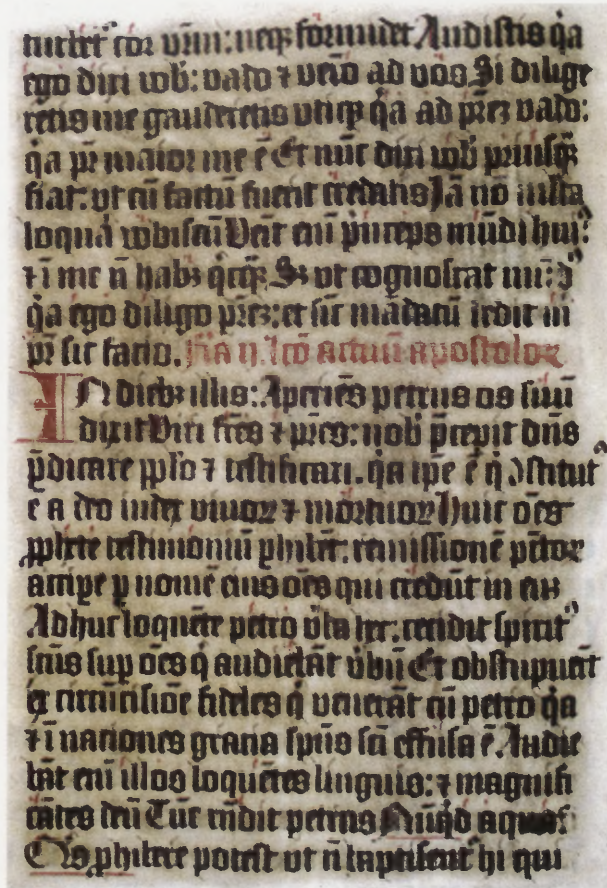 turbet᷑ cor vr̄m: neqꝫ formidet Audistis q̇a
ego dixi vob̄: vado ⁊ venio ad vos Si dilige
retis me gauderetis vtiqꝫ q̇a ad pr̄eꝫ vado:
q̇a pr̄ maior me ē Et nūc dixi vob̄ priusqꝫ̄
fiat: vt cū factū fuerit credatis Iā nō multa
loquar̄ vobiscū Veīt em̄ pͥnceps mūdi huiꝰ:
⁊ ī me n̄ habꝫ q̇cqꝫ̄. Sꝫ vt cognoscat mūdꝰ
q̇a ego diligo pr̄eꝫ: et sic mādatū dedit m̄
pr̄ sic facio. Fr̄ia ij. Lcō actuū apostoloꝝ
IN diebꝫ illis: Aperiēs petrus os suū
dixit Viri fr̄es ⁊ pr̄es: nob̄ p̄cepit dn̄s
p̄dicare pp̄lo ⁊ testificari. q̇a ip̄e ē q̇ ↄstitutꝰ
ē a deo iudex viuoꝝ ⁊ mortuoꝝ Huic oēs
ꝓphete testimoniū ꝑhibēt. remissionē pctōꝝ
accipe ꝑ nomē eius oēs qui credūt in eū
Adhuc loquēte petro v̄ba hec. cecidit spiritꝰ
sctūs suꝑ oēs q̇ audiebāt v̄bū Et obstupuerūt
ex circūcisiōe fideles q̇ venerāt cū petro q̇a
⁊ ī nationes gratia sp̄us scī effusa ē. Audie
bāt em̄ illos loquētes linguis: ⁊ magnifi
cātes deū Tūc rn̄dit petrus Nūq̇d aquaꝫ
Qͥs ꝓhibere potest vt n̄ baptisent᷑ hi qui